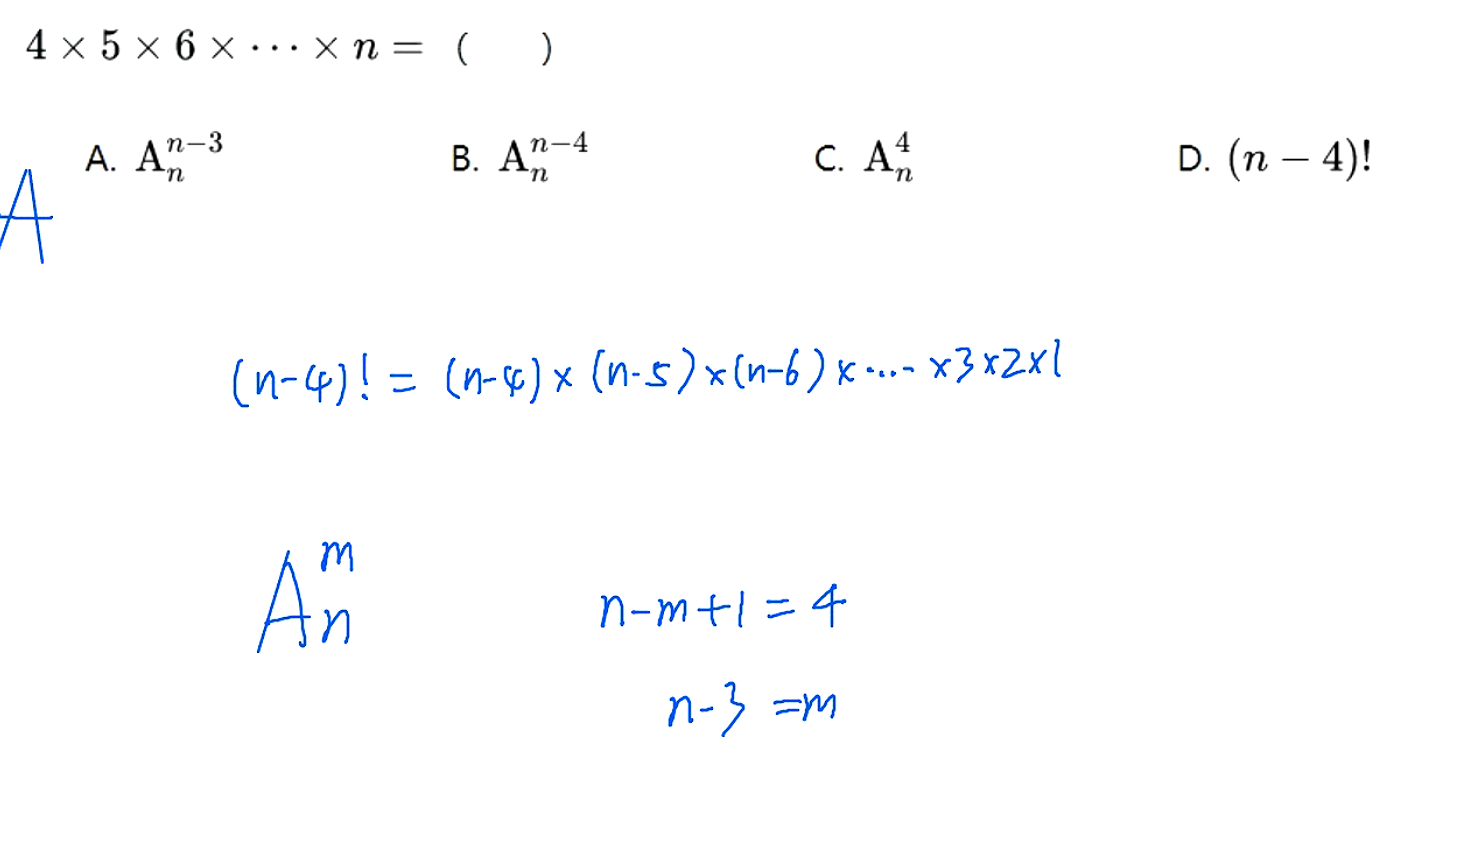 4 × 5 × 6 × ⋯ × n = ( )
A. A_n^{n−3} B. A_n^{n−4} C. A_n^4 D. (n − 4)!
A
(n-4)! = (n-4) × (n-5) × (n-6) × ⋯ × 3 × 2 × 1
A_n^m n-m+1 = 4
n-3 = m